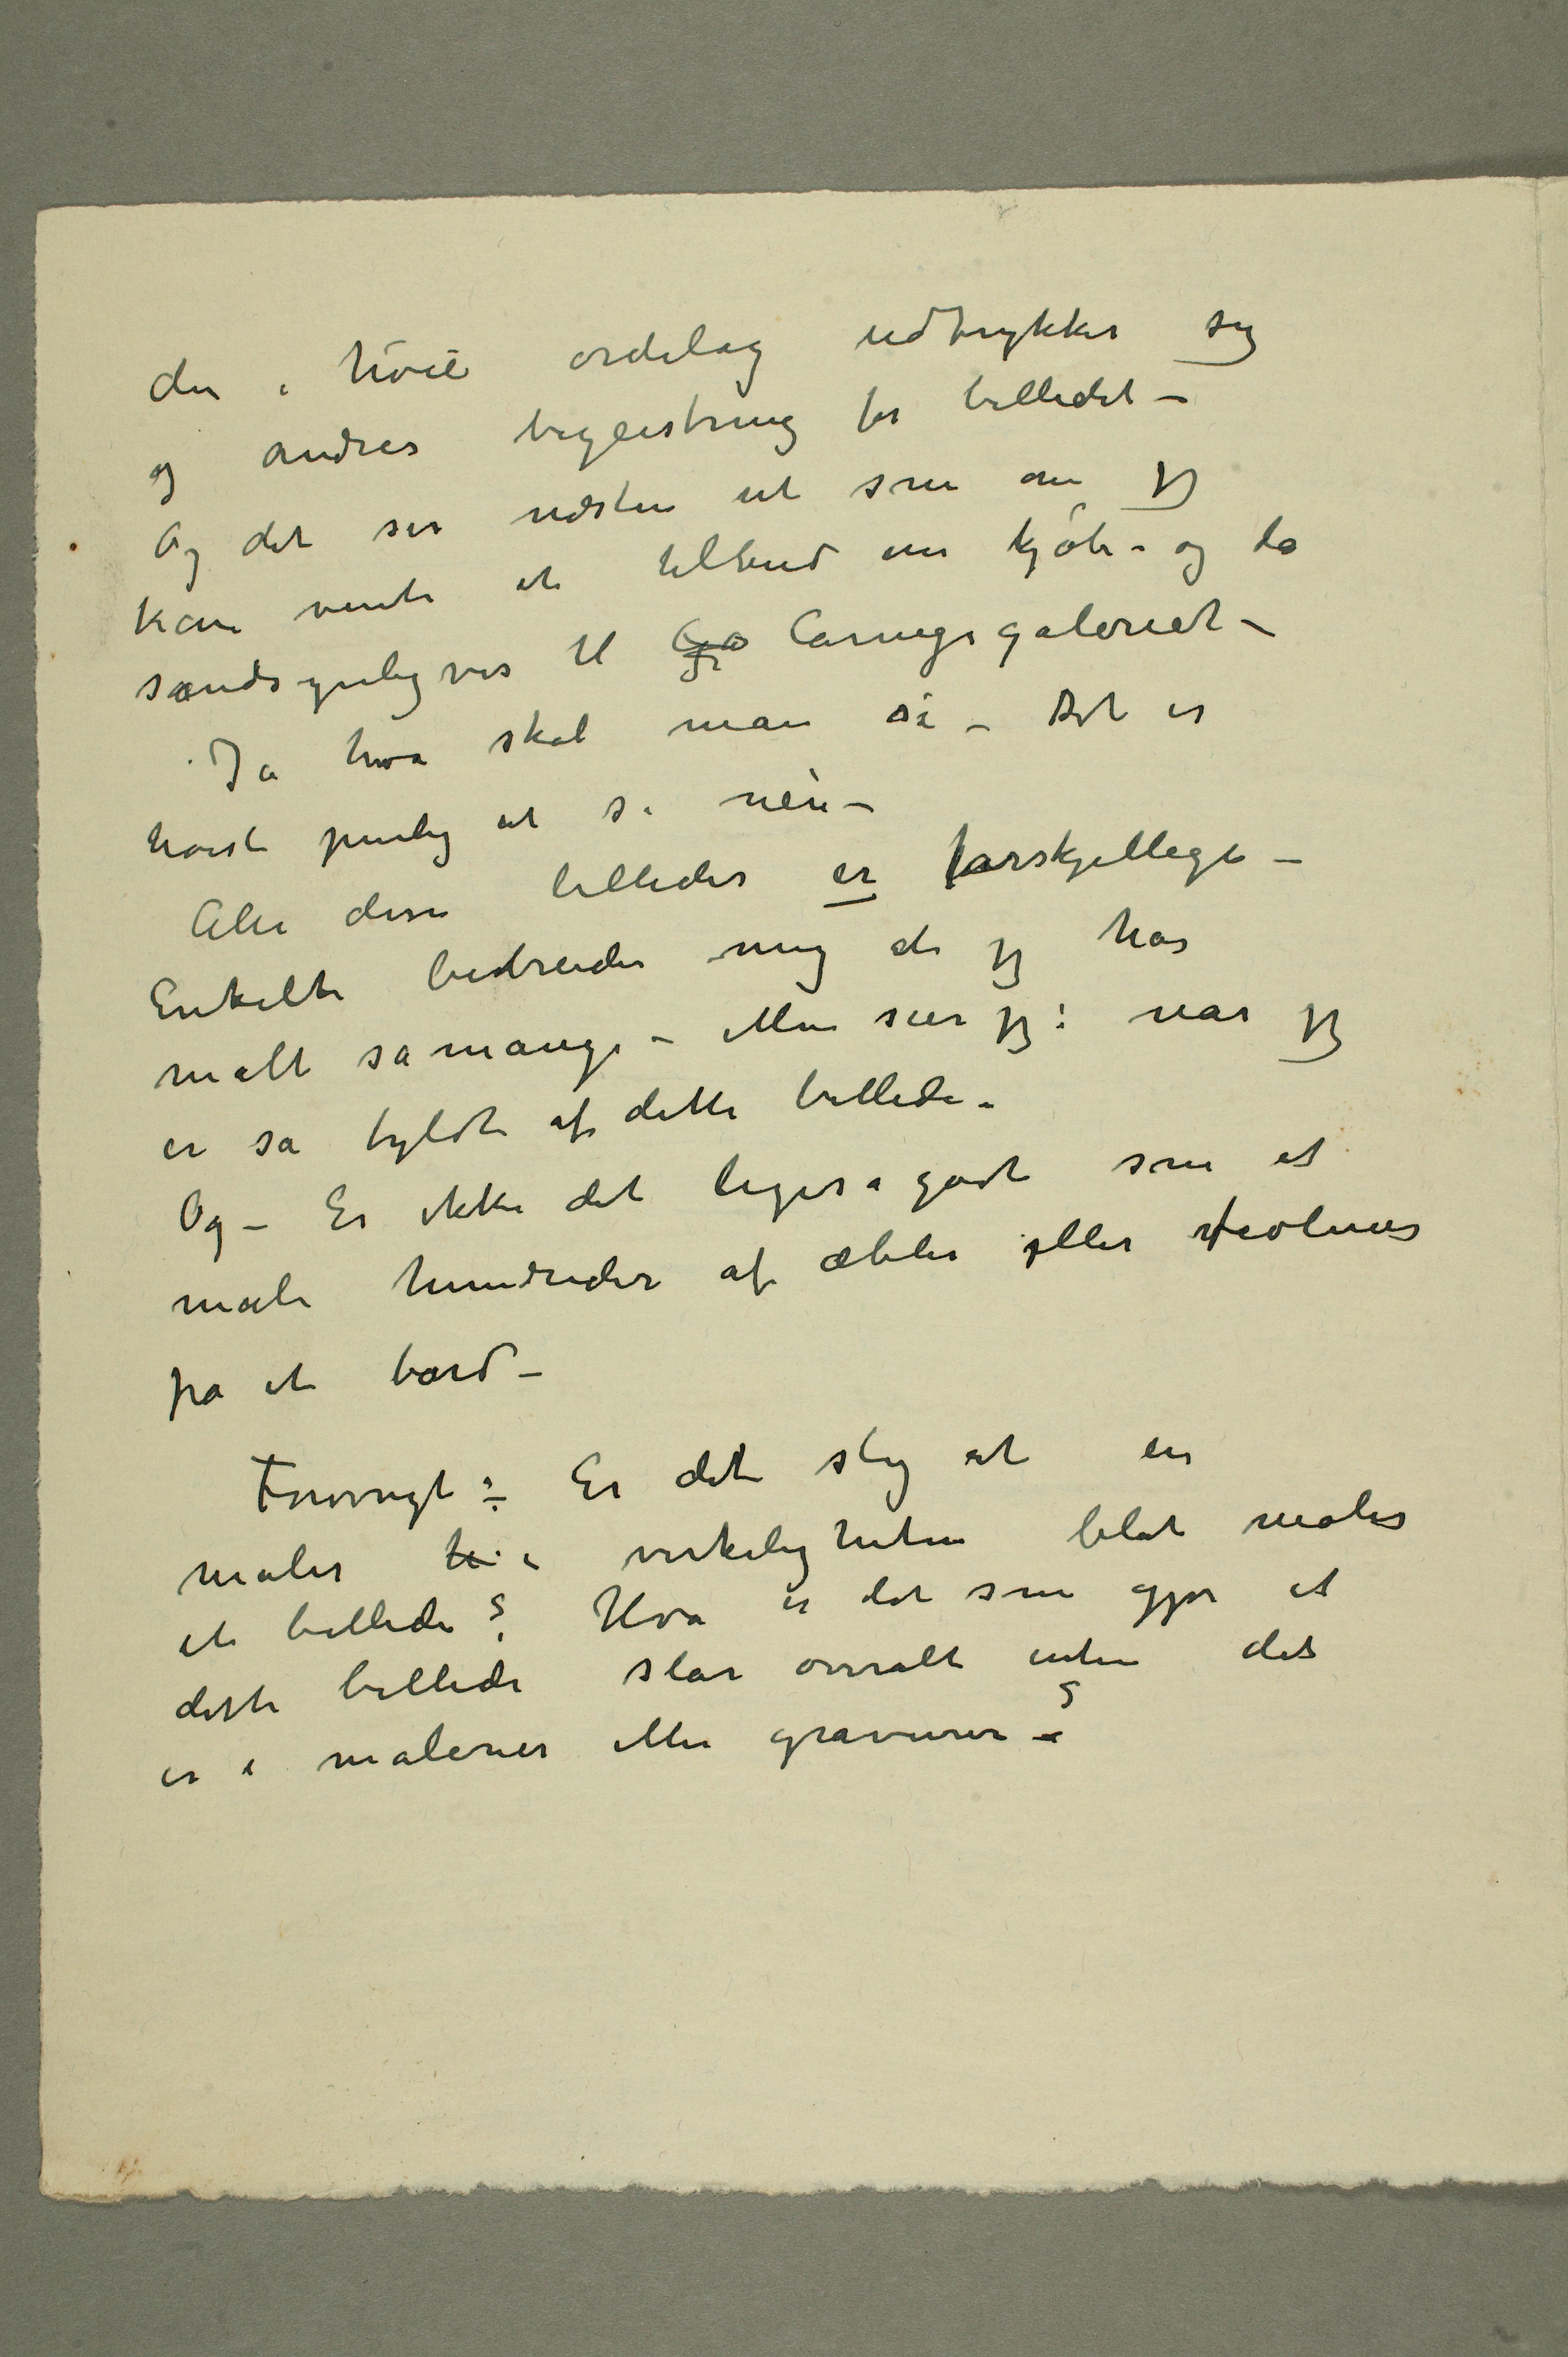 der i høie ordelag udtrykker sig
og andres begeistring for billedet –
Og det ser næsten ut som om jeg
kan vente et tilbud om kjøb – og da
sandsynligvis til Carnegi galeriet –
Ja hva skal man si – Det er
høist pinlig at si nei –
Alle disse billeder er forskjellige –
Enkelte bebreider mig at jeg har
malt så mange – Men sier jeg: når jeg
er så fyldt af dette billede –
Og – Er ikke det ligeså godt som at
male hundreder af æbler eller fioliner
på et bord –
Forøvrigt: Er det slig at en
maler i virkeligheten blot maler
et billede? Hva er det som gjør at
dette billede slår overalt enten det
er i malerier eller gravurer –?